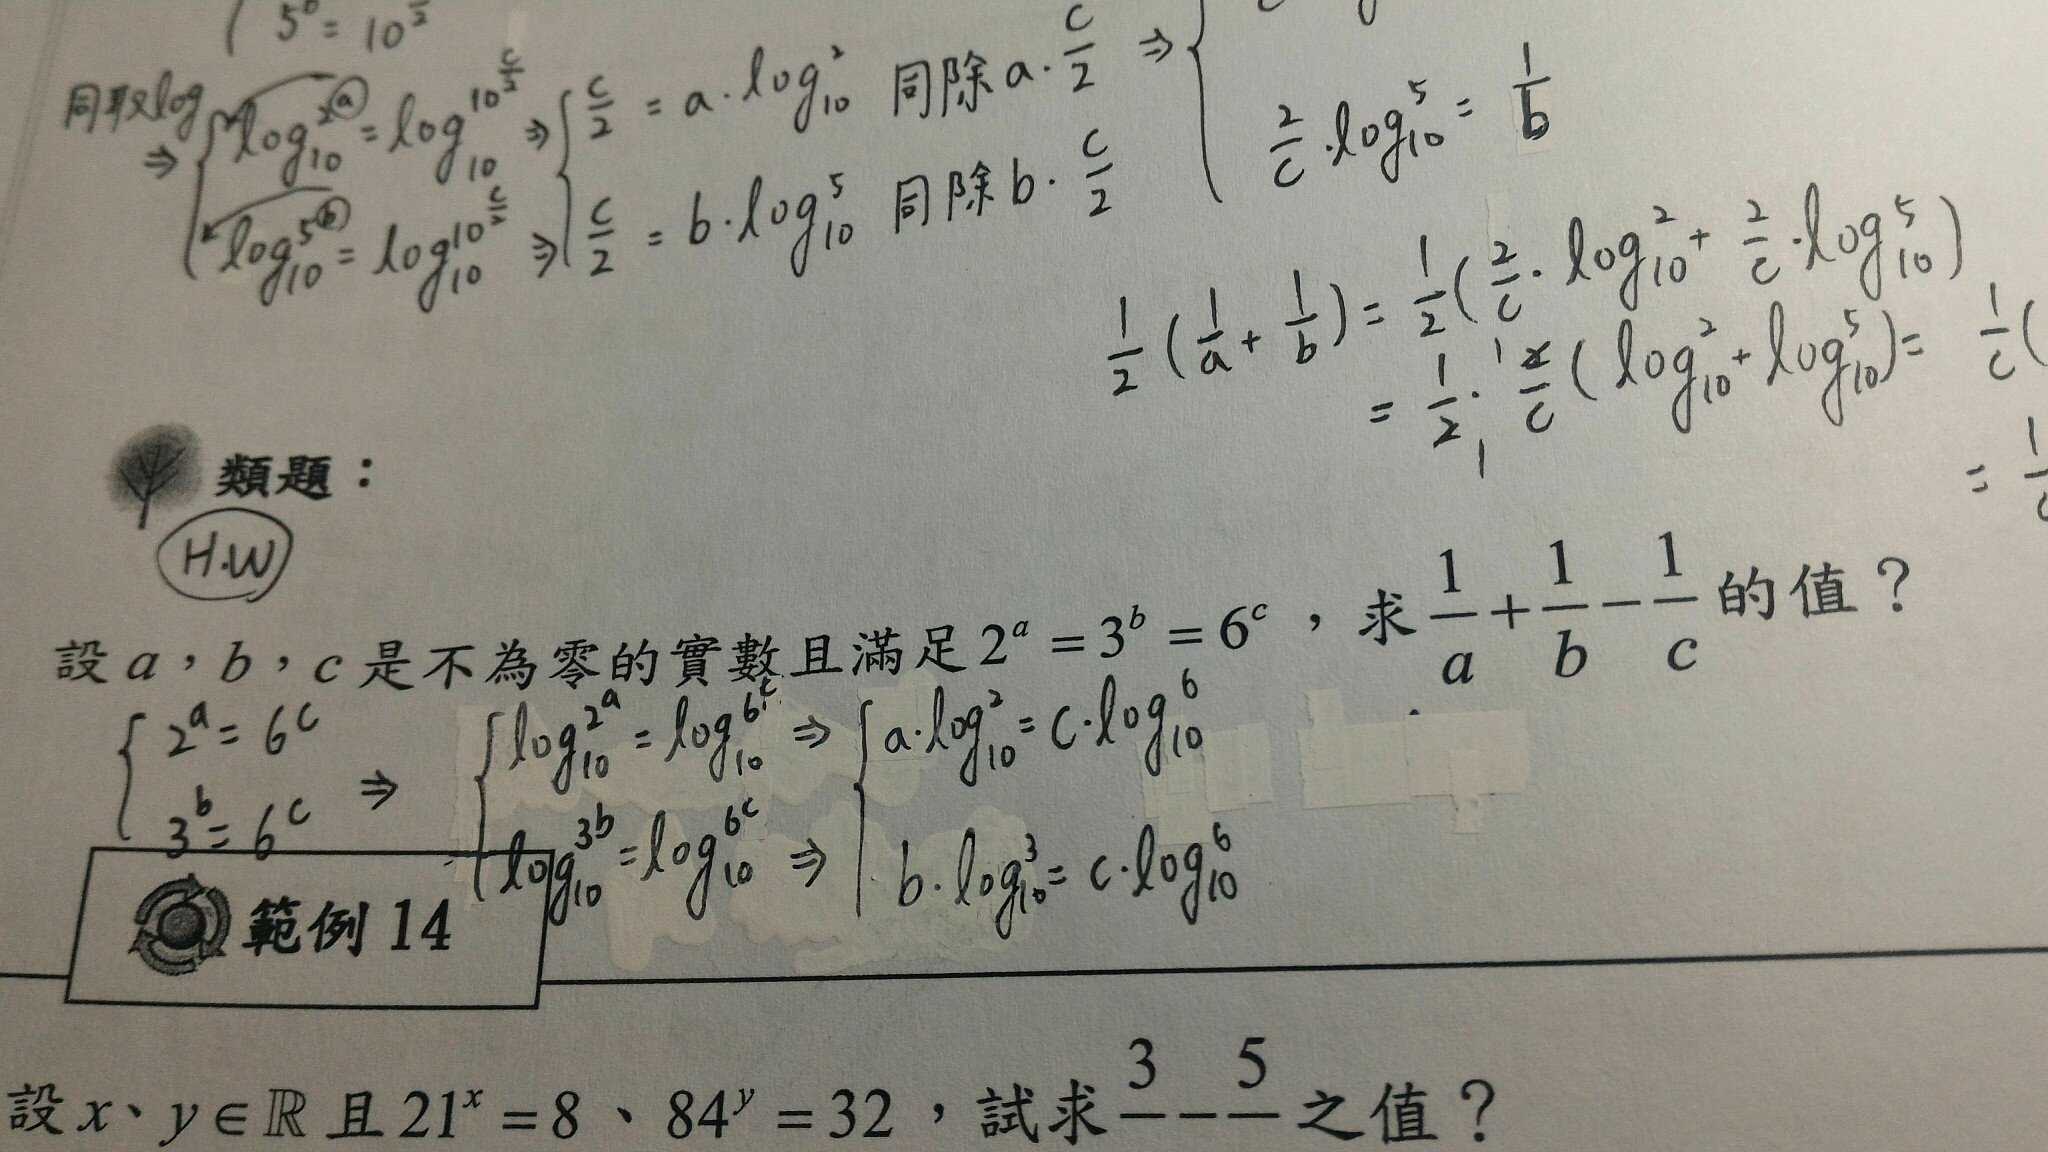 5^b = 10^{c/2}
同取log
⇒ { log_{10} 2^a = log_{10} 10^{c/2} ⇒ { c/2 = a · log_{10} 2 同除 a · c/2 ⇒ {
log_{10} 5^b = log_{10} 10^{c/2} ⇒ c/2 = b · log_{10} 5 同除 b · c/2
2/c · log_{10} 5 = 1/b
1/2 (1/a + 1/b) = 1/2 (2/c · log_{10} 2 + 2/c · log_{10} 5)
= 1/2 · 2/c (log_{10} 2 + log_{10} 5) = 1/c (
= 1/
類題：
H.W
設 a，b，c 是不為零的實數且滿足 2^a = 3^b = 6^c，求 1/a + 1/b − 1/c 的值？
{ 2^a = 6^c ⇒ { log_{10} 2^a = log_{10} 6^c ⇒ { a · log_{10} 2 = c · log_{10} 6
3^b = 6^c log_{10} 3^b = log_{10} 6^c ⇒ b · log_{10} 3 = c · log_{10} 6
範例 14
設 x、y ∈ ℝ 且 21^x = 8、84^y = 32，試求 3/ − 5/ 之值？